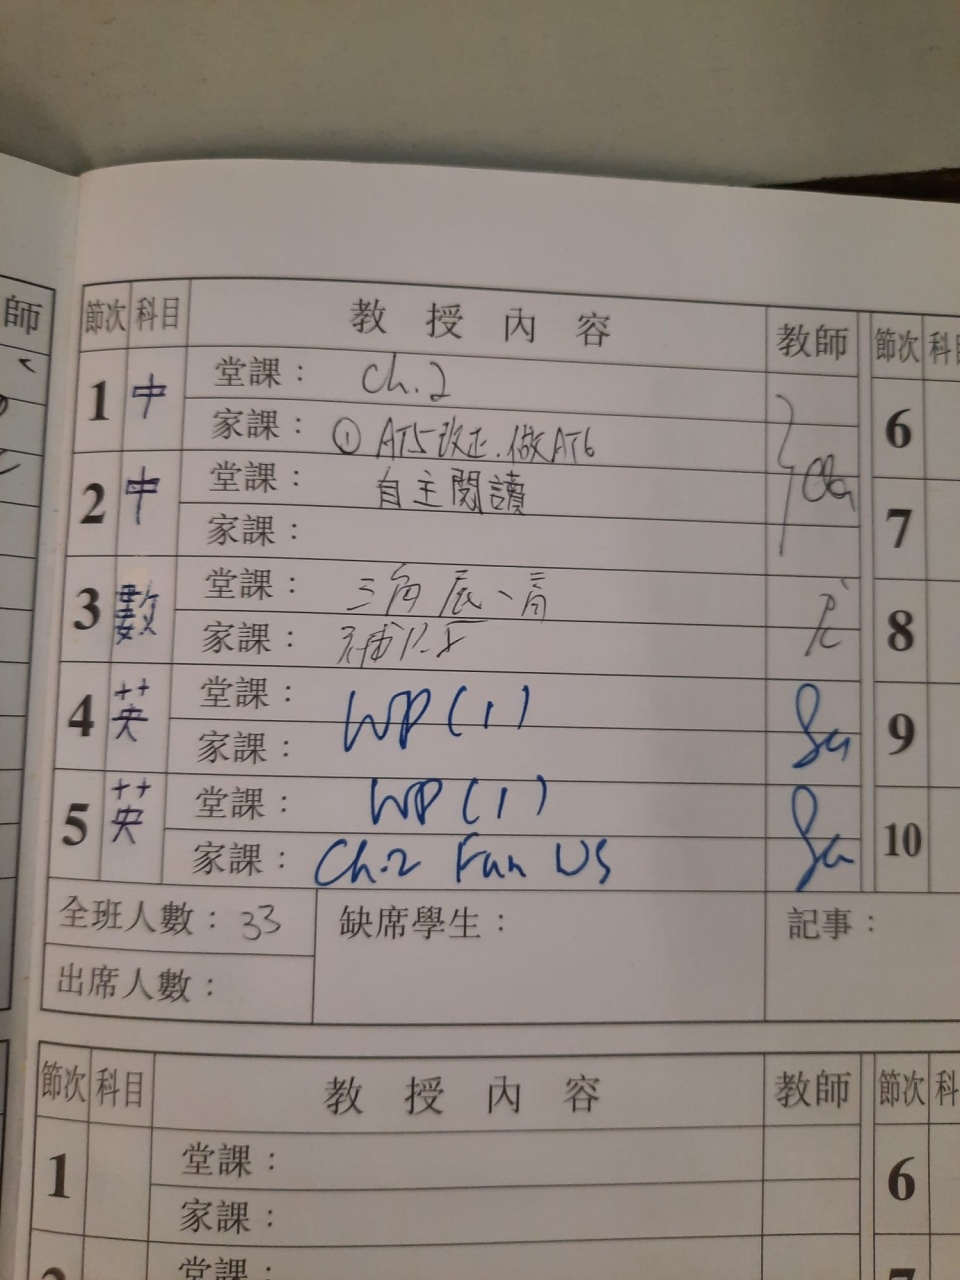 師
節次 科目 教授內容 教師 節次 科目
1 中 堂課： Ch.2
家課： ① AT5改正.做AT6
6
2 中 堂課： 自主閱讀
家課：
7
3 數 堂課： 三角底、高
家課：
8
4 英 堂課： WP(1)
家課：
9
5 英 堂課： WP(1)
家課： Ch.2 Fun WS
10
全班人數：33 缺席學生： 記事：
出席人數：
節次 科目 教授內容 教師 節次 科
1 堂課：
家課：
6
2 堂課：
7